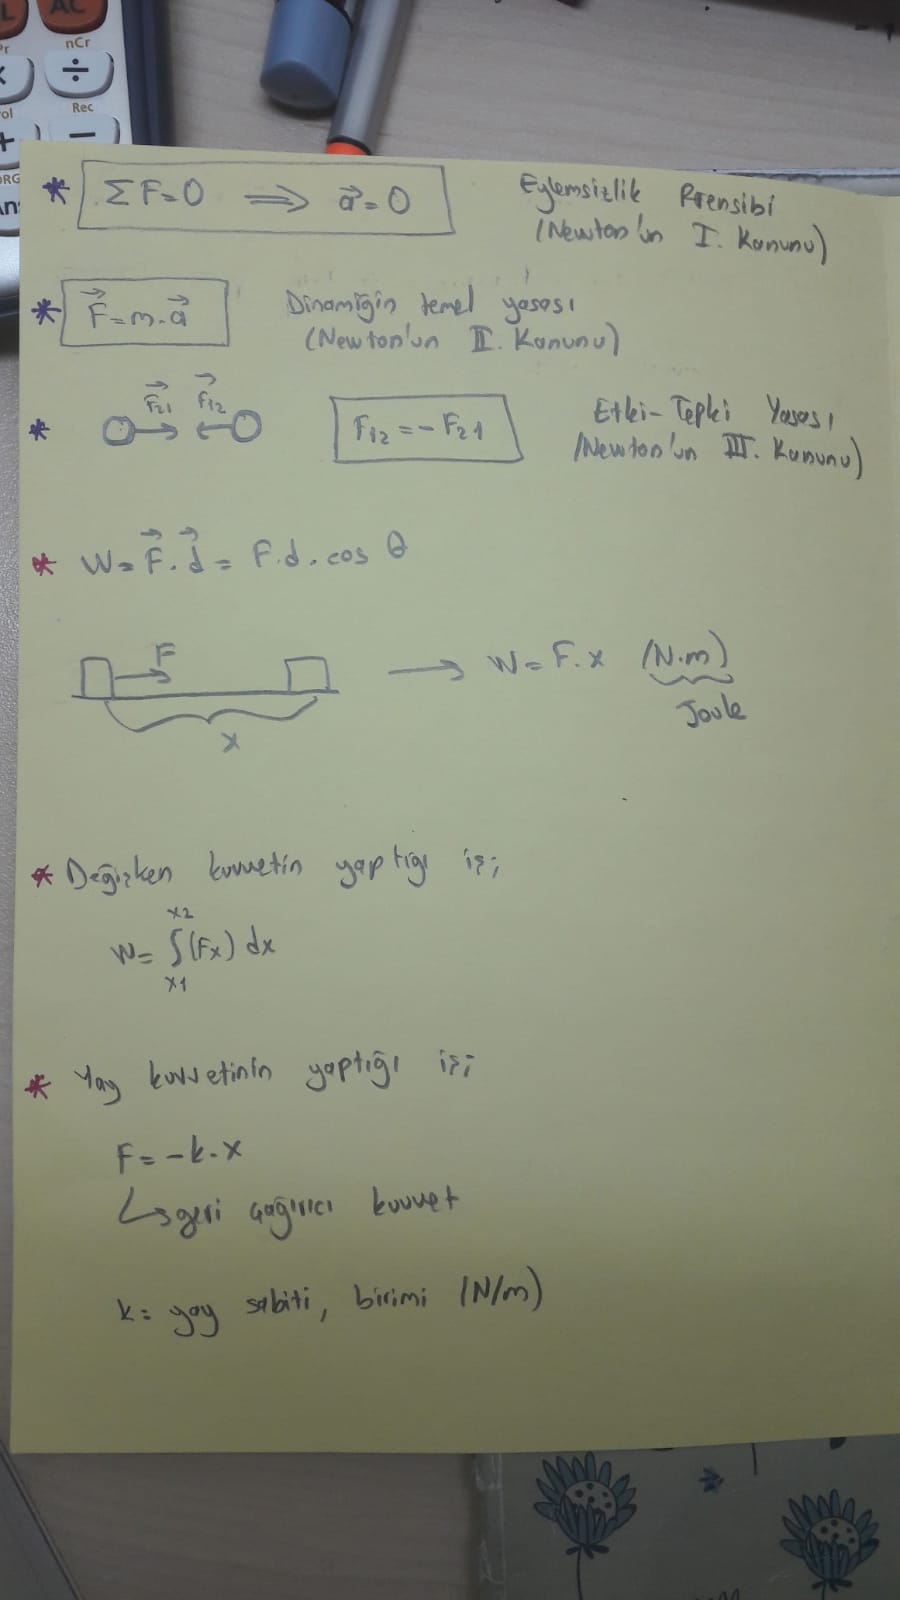 AC
nCr
÷
Rec
−
+
* ΣF=0 ⟹ a⃗=0 Eylemsizlik Prensibi
(Newton'un I. Kanunu)
* F⃗=m.a⃗ Dinamiğin temel yasası
(Newton'un II. Kanunu)
* F⃗21 F⃗12 F12=-F21 Etki-Tepki Yasası
(Newton'un III. Kanunu)
* W=F⃗.d⃗=F.d.cos θ
F
x
→ W=F.x (N.m)
Joule
* Değişken kuvvetin yaptığı iş;
x2
W= ∫(Fx) dx
x1
* Yay kuvvetinin yaptığı iş;
F=-k.x
↳ geri çağırıcı kuvvet
k= yay sabiti, birimi (N/m)